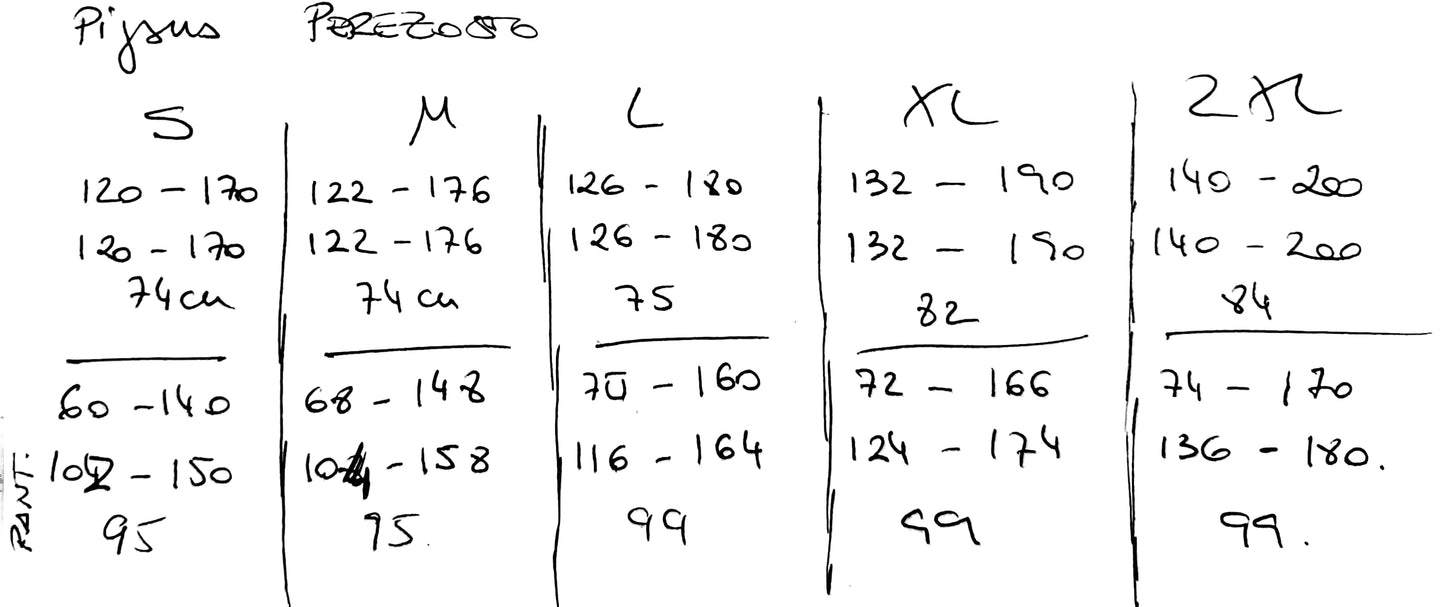 Pijsus PEREZOSO
S M L XL 2XL
120 - 170 122 - 176 126 - 180 132 - 190 140 - 200
120 - 170 122 - 176 126 - 180 132 - 190 140 - 200
74 cm 74 cm 75 82 84
60 - 140 68 - 148 70 - 160 72 - 166 74 - 170
102 - 150 104 - 158 116 - 164 124 - 174 136 - 180.
PANT.
95 95. 99 99 99.